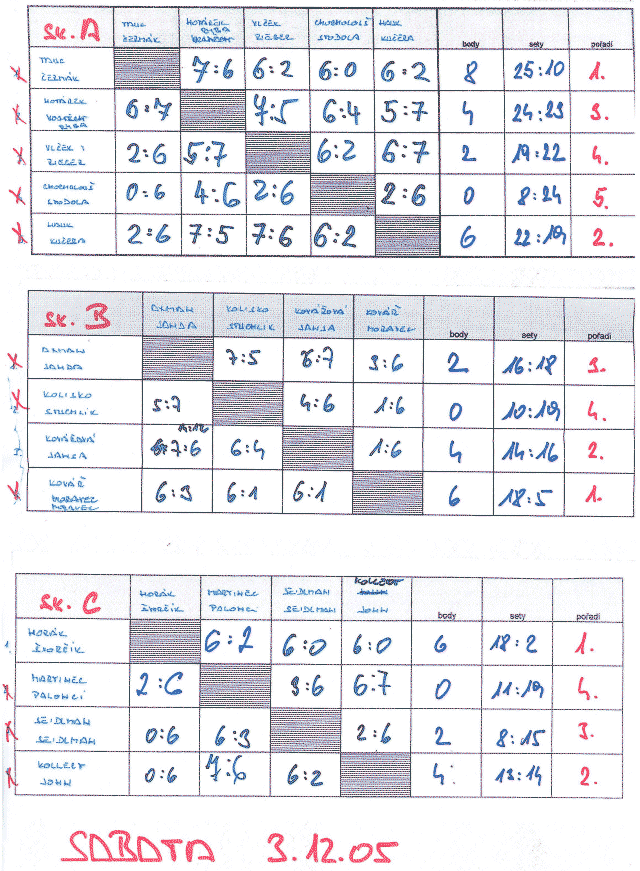 SK. A
TMUC ŽERMÁK
HOVÁREK RYBA
VLČEK RIEGER
CHOCHOLOUŠ STODOLA
HAUK KUČERA
body sety pořadí
ŽERMÁK 7:6 6:2 6:0 6:2 8 25:10 1.
6:7 7:5 6:4 5:7 4 24:23 3.
VLČEK RIEGER 2:6 5:7 6:2 6:7 2 19:22 4.
STODOLA 0:6 4:6 2:6 2:6 0 8:24 5.
KUČERA 2:6 7:5 7:6 6:2 6 22:19 2.
SK. B
JANDA
KOLISKO STUCHLIK
KOVÁŘOVÁ JANSA
KOVÁŘ MORAVEC
body sety pořadí
JANDA 7:5 6:7 3:6 2 16:18 3.
KOLISKO STUCHLÍK 5:7 4:6 1:6 0 10:19 4.
KOVÁŘOVÁ JANSA 7:6 6:4 1:6 4 14:16 2.
KOVÁŘ MORAVEC 6:3 6:1 6:1 6 18:5 1.
SK. C
HORÁK
MARTINEC PALONCI
SEIDLMAN SEIDLMAN
KOLLERT JOHN
body sety pořadí
HORÁK 6:2 6:0 6:0 6 18:2 1.
MARTINEC PALONCÍ 2:6 3:6 6:7 0 11:19 4.
SEIDLMAN SEIDLMAN 0:6 6:3 2:6 2 8:15 3.
KOLLERT JOHN 0:6 7:6 6:2 4 13:14 2.
SOBOTA 3.12.05